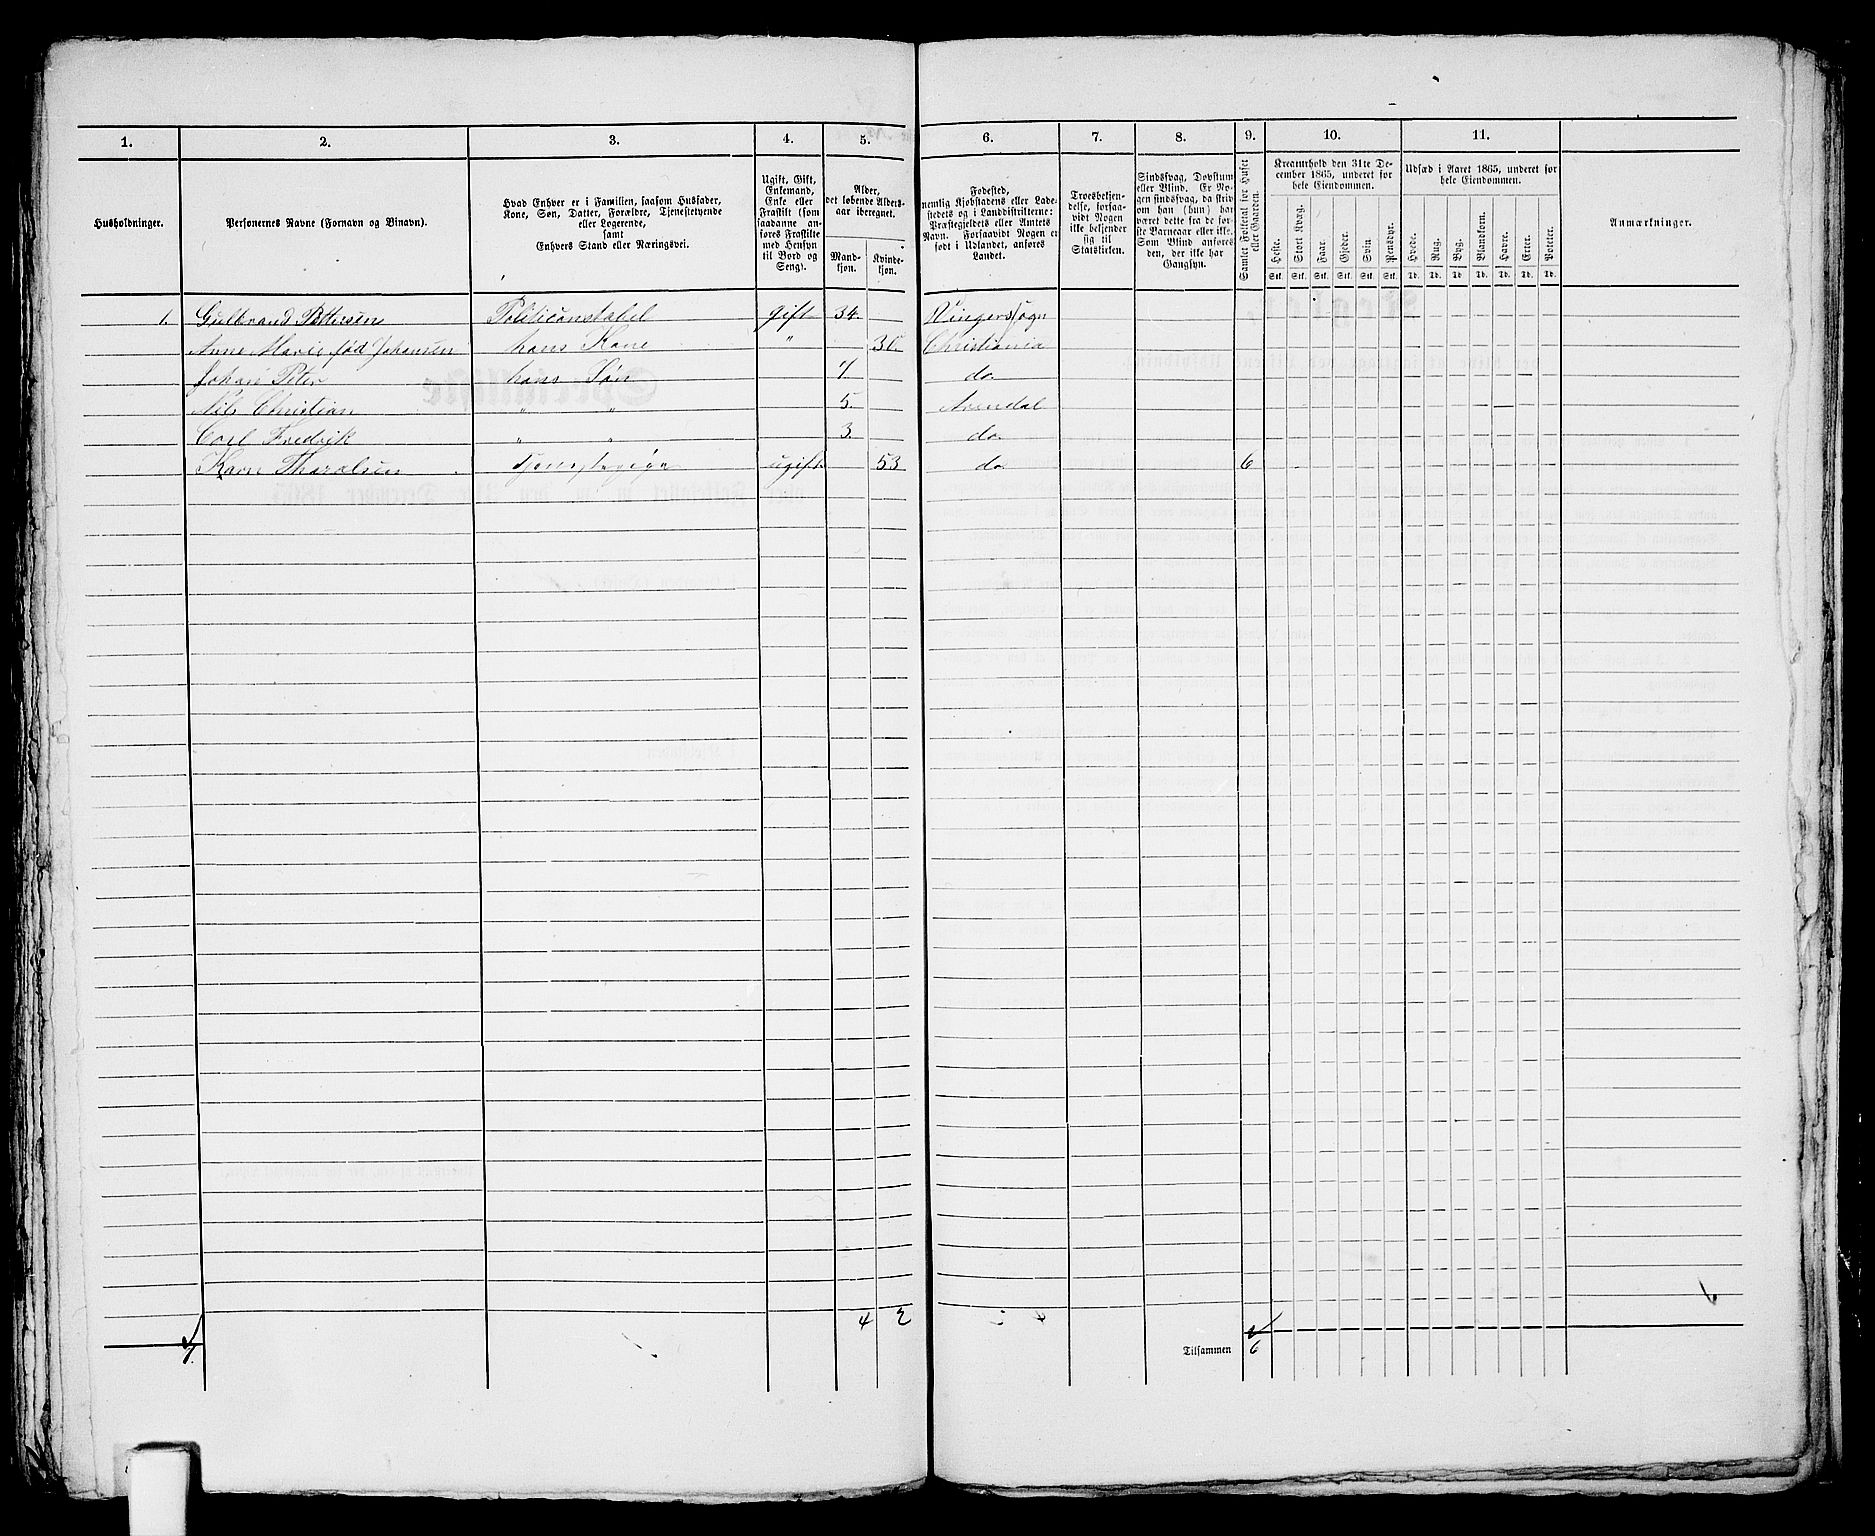 1. 2. 3. 4. 5. 6. 7. 8. 9. 10. 11.
Husholdninger.
Personernes Navne (Fornavn og Binavn).
Hvad Enhver er i Familien, saasom Husfader,
Kone, Søn, Datter, Forældre, Tjenestetyende
eller Logerende,
samt
Enhvers Stand eller Næringsvei.
Ugift, Gift,
Enkemand,
Enke eller
Fraskilt (som
saadanne an-
føres Fraskilte
med Hensyn
til Bord og
Seng).
Alder,
det løbende Alders-
aar iberegnet.
Mand-
kjøn.
Kvinde-
kjøn.
Fødested,
nemlig Kjøbstadens eller Lade-
stedets og i Landdistrikterne:
Præstegjeldets eller Amtets
Navn. Forsaavidt Nogen er
født i Udlandet, anføres
Landet.
Troesbekjen-
delse, forsaa-
vidt Nogen
ikke bekjender
sig til
Statskirken.
Sindssvag, Døvstum
eller Blind. Er No-
gen sindssvag, da skriv
om han (hun) har
været dette fra de før-
ste Barneaar eller ikke.
Som Blind anføres
den, der ikke har
Gangsyn.
Samlet Folketal for Huset
eller Gaarden.
Kreaturhold den 31te De-
cember 1865, underet for
hele Eiendommen.
Heste.
Stort Kvæg.
Faar.
Gjeder.
Svin.
Rensdyr.
Stk. Stk. Stk. Stk. Stk. Stk.
Udsæd i Aaret 1865, underet for
hele Eiendommen.
Hvede.
Rug.
Byg.
Blandkorn.
Havre.
Erter.
Poteter.
Td. Td. Td. Td. Td. Td. Td.
Anmærkninger.
1. Gulbrand Pettersen Politiconstabel gift 34. Ringerssogn
Anne Marie fød Johansen hans Kone " Christiania
Johan Peter hans Søn 7. do
Nils Christian " " 5. Arendal
Carl Fredrik " " 3. do
Karn Tharalsen Tjenestepige ugift 53 do 6
4 2
1. Tilsammen 6